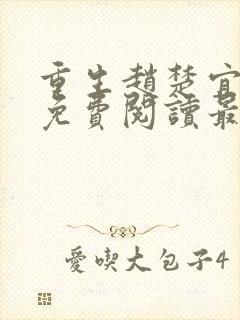 重生趙楚宜
免費閱讀最
愛喫大包子4